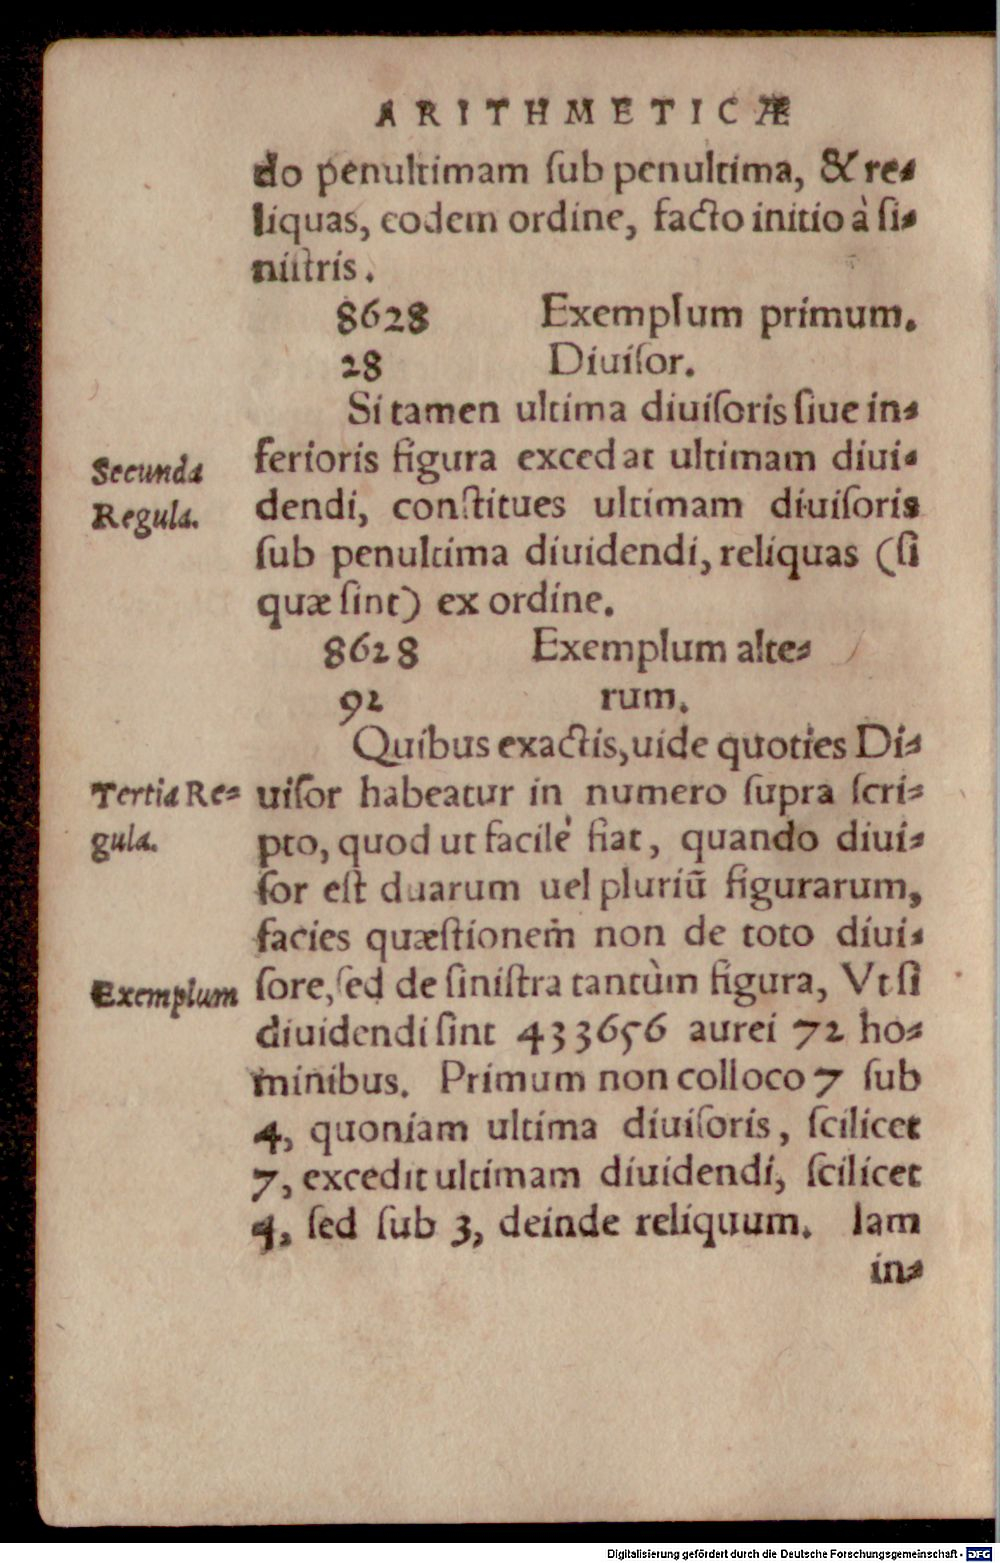 ARITHMETICÆ
do penultimam ſub penultima, & re⸗
liquas, eodem ordine, facto initio à ſi⸗
niſtris.
8628 Exemplum primum.
28 Diuiſor.
Si tamen ultima diuiſoris ſiue in⸗
Secunda
Regula.
ferioris figura excedat ultimam diui⸗
dendi, conſtitues ultimam diuiſoris
ſub penultima diuidendi, reliquas (ſi
quæ ſint) ex ordine.
8628 Exemplum alte⸗
92 rum.
Quibus exactis, uide quoties Di⸗
Tertia Re⸗
gula.
uiſor habeatur in numero ſupra ſcri⸗
pto, quod ut facilè fiat, quando diui⸗
ſor eſt duarum uel pluriũ figurarum,
facies quæſtionem non de toto diui⸗
Exemplum
ſore, ſed de ſiniſtra tantùm figura, Vt ſi
diuidendi ſint 433656 aurei 72 ho⸗
minibus. Primum non colloco 7 ſub
4, quoniam ultima diuiſoris, ſcilicet
7, excedit ultimam diuidendi, ſcilicet
4, ſed ſub 3, deinde reliquum. Iam
in⸗
Digitalisierung gefördert durch die Deutsche Forschungsgemeinschaft - DFG